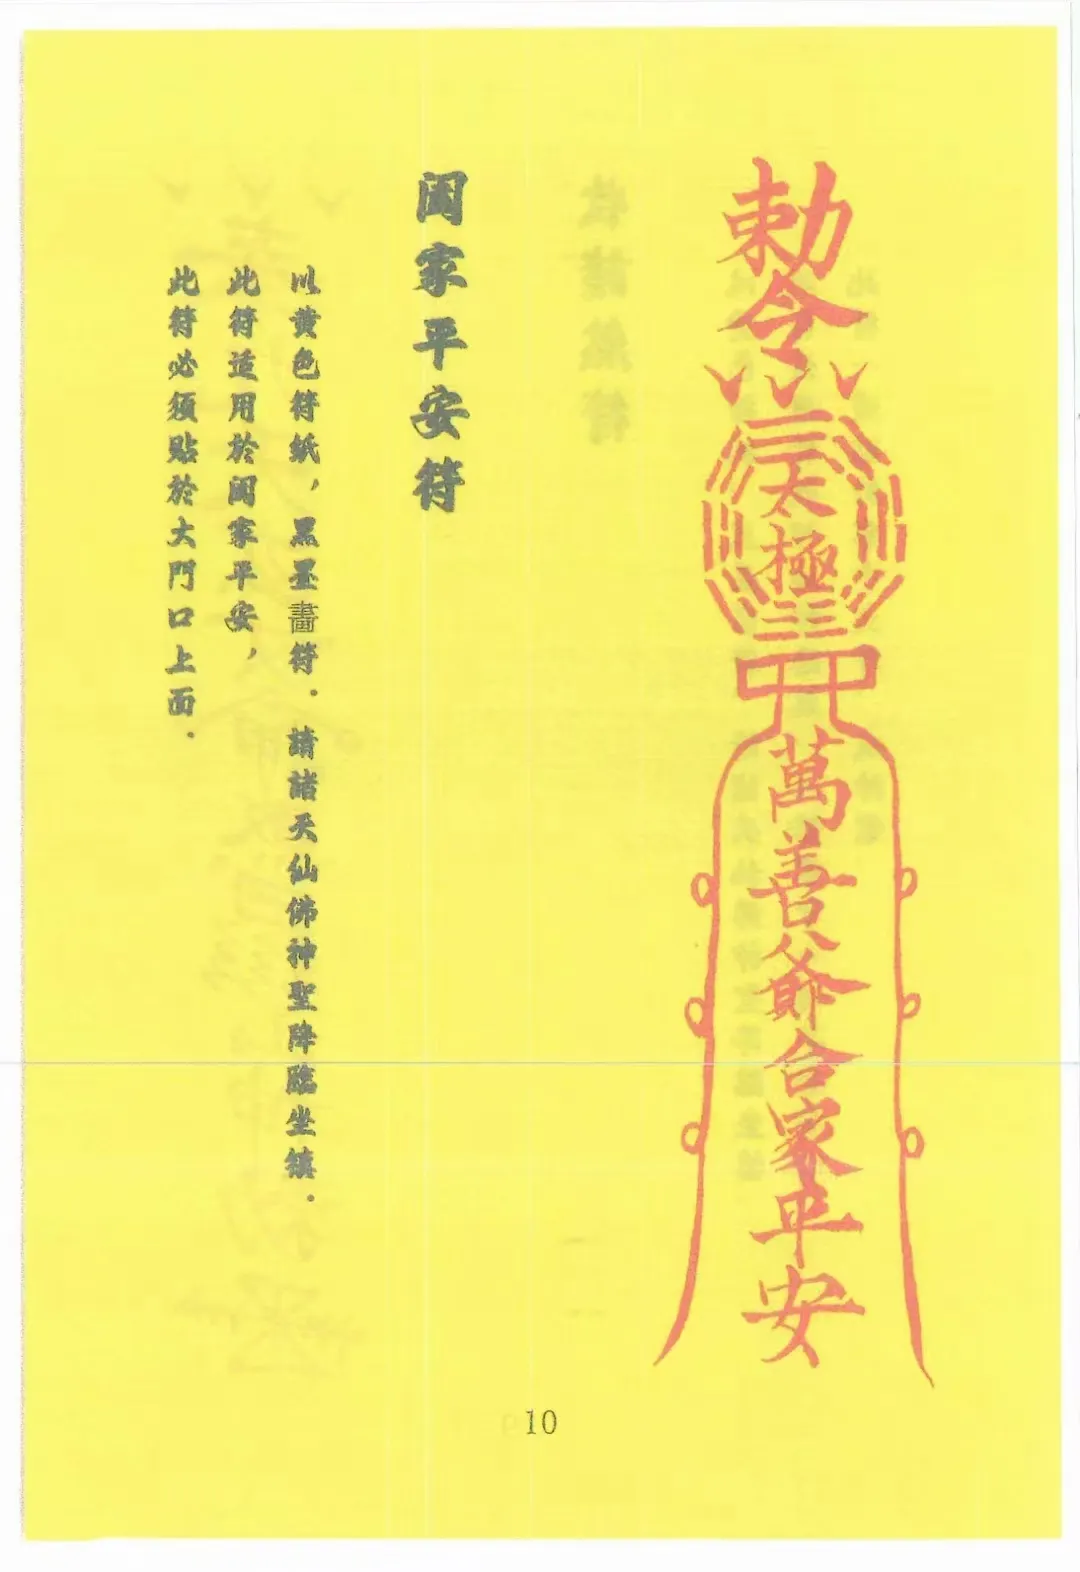 勅令
太極
萬善爺合家平安
闔家平安符
以黄色符紙，黑墨畫符．請諸天仙佛神聖降臨坐鎮．
此符适用於闔家平安，
此符必須貼於大門口上面．
10